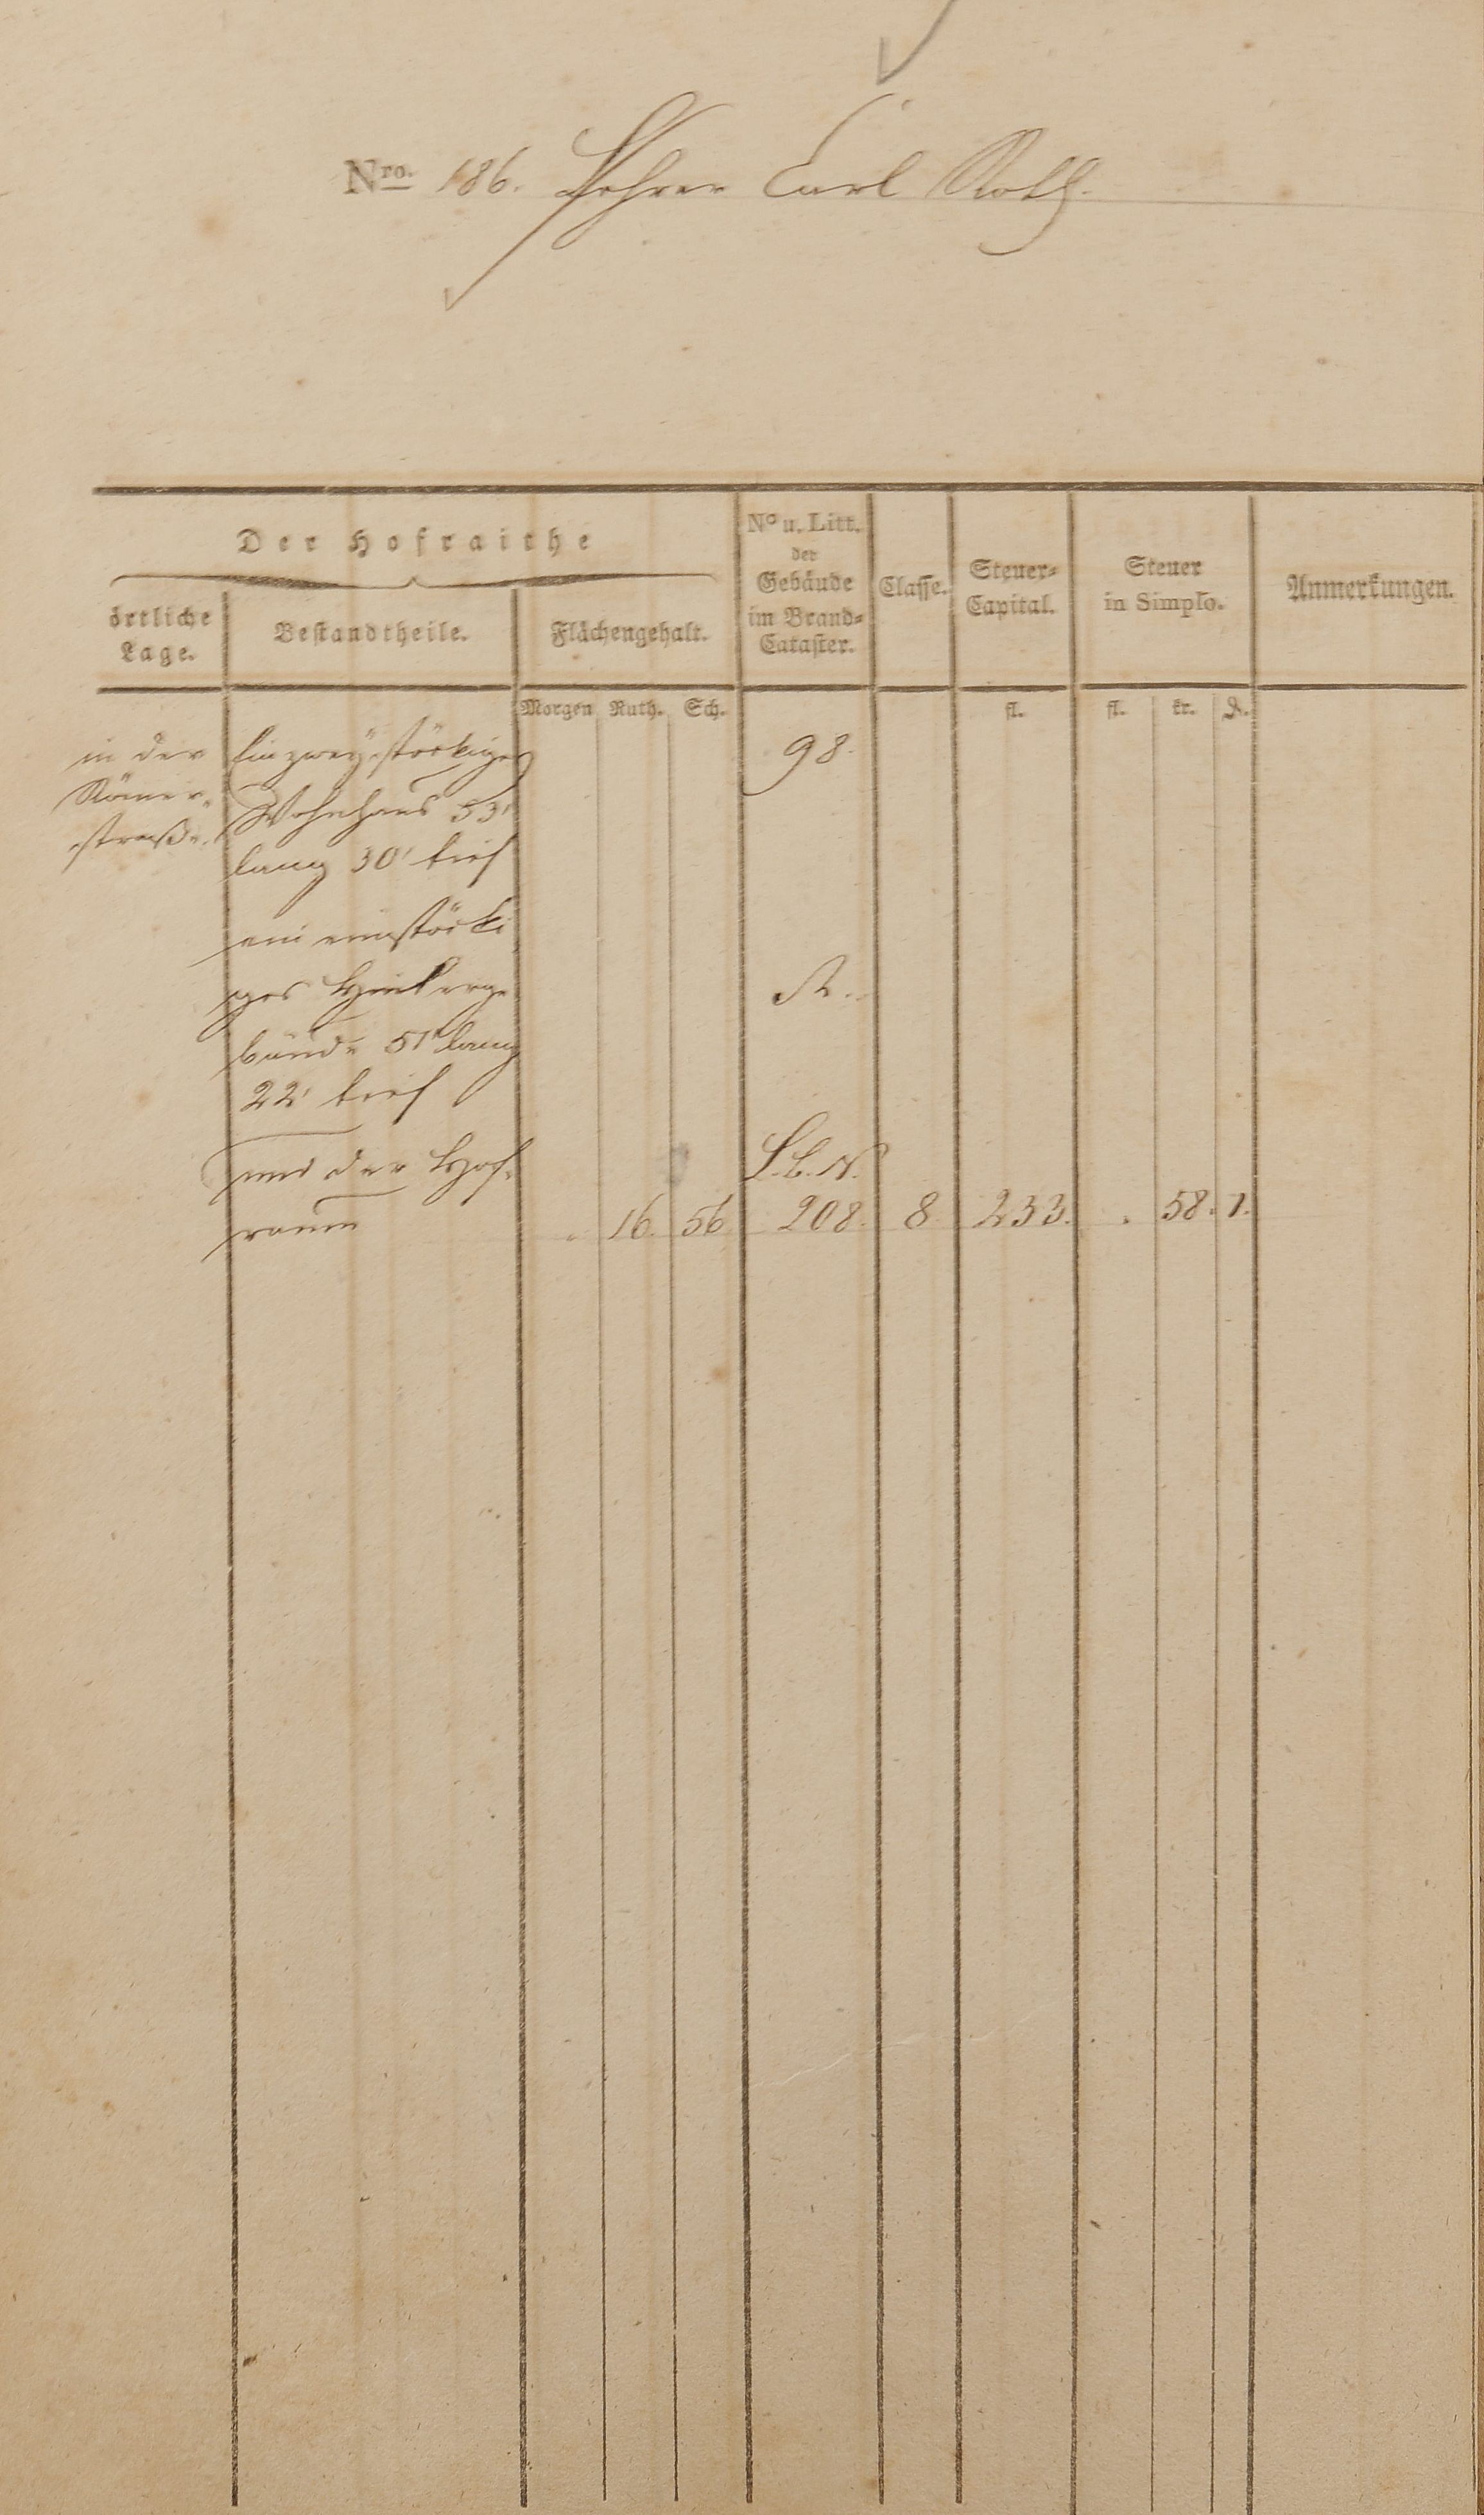 Nro. 186. Lehrer Carl Roth.
Der Hofraithe
örtliche Lage.
Bestandtheile.
Flächengehalt.
No u. Litt. der Gebäude im Brand-Cataster.
Classe.
Steuer-Capital.
Steuer in Simplo.
Anmerkungen.
Morgen Ruth. Sch. fl. fl. kr. ₰.
in der Ein zweystöckiges 98.
Römer- Wohnhaus 53'
straße. lang 30' tief
ein einstöcki
ges Hinterge- A.
bäude 51' lang
22' tief
und der Hof- St. b. N.
raum . 16. 56 208. 8. 233. . 58. 1.